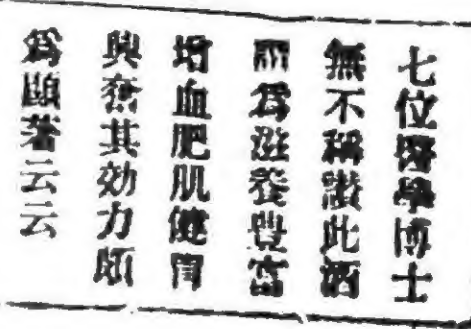 七位醫學博士
無不稱讚此酒
謂爲滋養豊富
增血肥肌健胃
興奮其効力頗
爲顯著云云